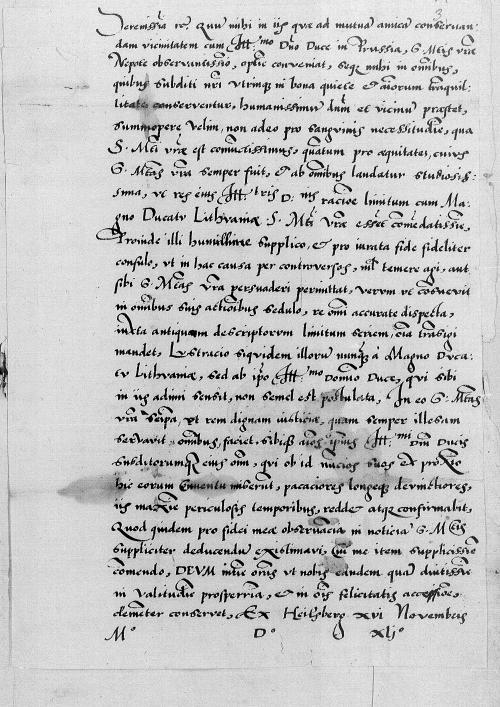 Serenissīa rē. Quū mihi in ijs quæ ad mutuā amicā conservan:
dam vicinitatem cum Ill:mo Dno Duce in Prussia, S. Mtis vræ
Nepote observantissīo, optīe conveniat, seqȝ mihi in omībus,
quibus subditi nri utrinqȝ in bona quiete et aīorum trāquil:
litate conserventur, humanissimū dnm et vicinū præstet,
summopere velim, non adeo pro sanguinis necessitudīe, qua
S. Mti vræ est coniūctissimus, quātum pro æquitate, cuius
S. Mtas vra semper fuit, et ab omībus laudatur studiosis:
sima, ut res eius Ill:tris D. nis ratiōe limitum cum Ma:
gno Ducatu Lithvaniæ S. Mti vræ esset comēdatissīa,
Proinde illi humillimæ supplico, et pro iurata fide fideliter
consulo, ut in hac causa per controversos, nil temere agi, aut
sibi S. Mtas vra persuaderi permittat, verum ut cosuevit
in omībus suis actiōibus sedulo, re omī accurate dispecta,
iuxta antiquam descriptorum limitum seriem, oīa trāsigi
mandet, Lustratio siquidem illorū nunqȝ à Magno Duca:
tu Lithvaniæ, sed ab ipso Ill:mo Domīo Duce, qui sibi
in ijs adimi sensit, non semel est postulata, In eo S. Mtas
vra seīpa, et rem dignam iusticia, quam semper illesam
servavit omībus, faciet, sibiqȝ aīos ipsius Ill:mi Dni Ducis
subditorumqȝ eius oīm, qui ob id nūcios suos ex proxīo
hic eorum Cōventu miserūt, pacatiores longeqȝ devinctiores,
ijs maxīe periculosis temporibus, reddet atqȝ confirmabit,
Quod quidem pro fidei meæ observātia in noticiā S. M Eius
suppliciter deducendū existimavi, Cui me item supplicissīe
comendo, DEUM intīe orās ut nobis eandem quā diutissīe
in valitudīe prosperria, et in oīs felicitatis accessione,
clemēter conservet, Ex Heilsberg xvi Novembris
M° D° xlj°